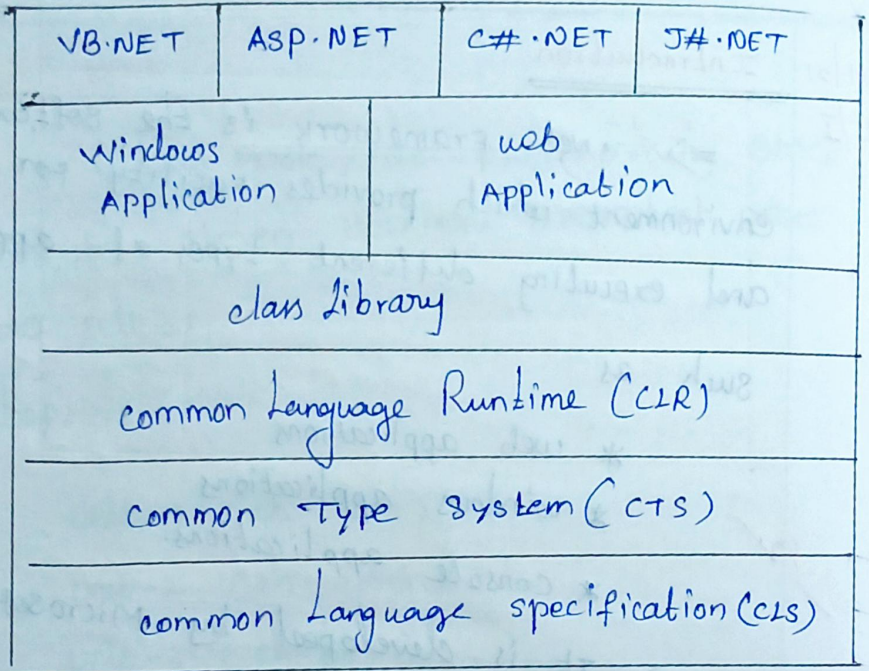 VB.NET
ASP.NET
C#.NET
J#.NET
Windows
Application
web
Application
class Library
common Language Runtime (CLR)
common Type System (CTS)
common Language specification (CLS)